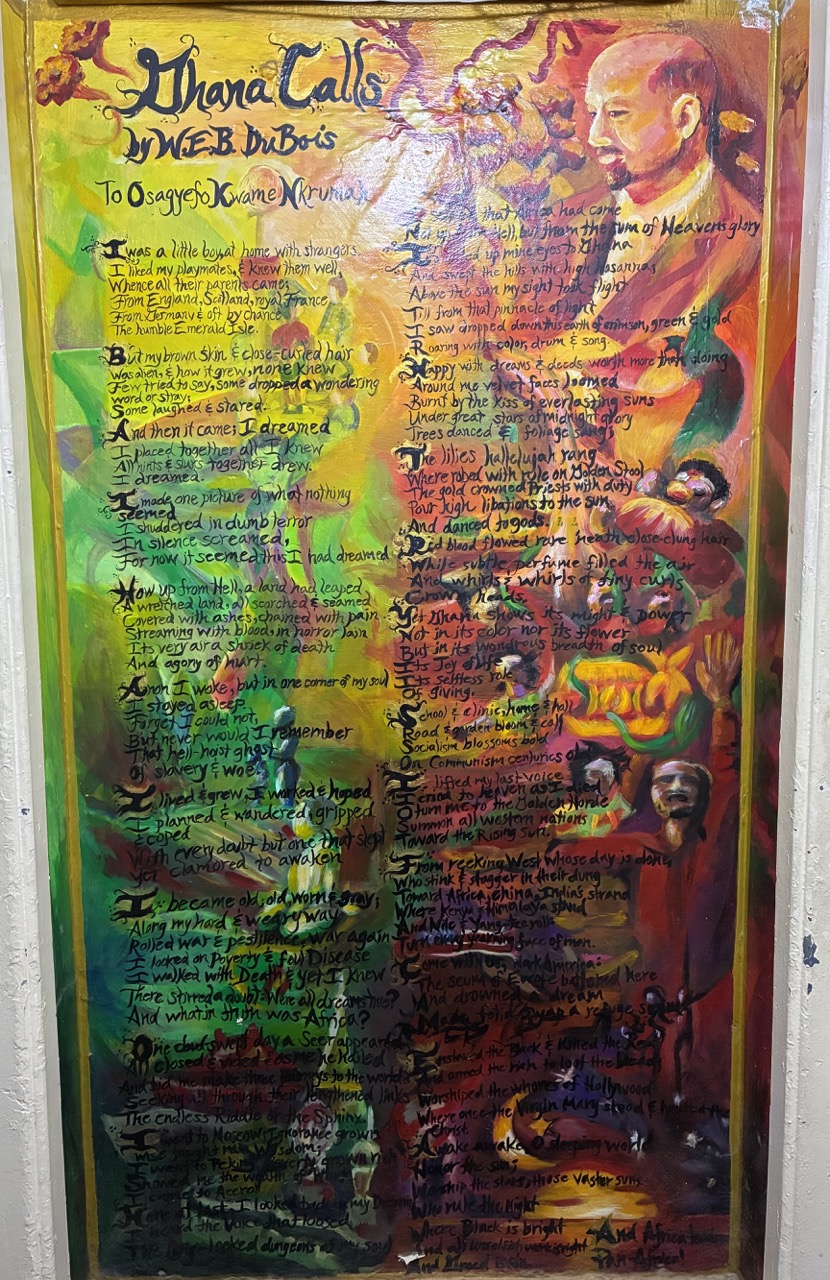 Ghana Calls
by W.E.B. DuBois
To Osagyefo Kwame Nkrumah
I was a little boy, at home with strangers.
I liked my playmates, & knew them well,
Whence all their parents came;
From England, Scotland, royal France
From Germany & oft by chance
The humble Emerald Isle.
But my brown skin & close-curled hair
Was alien, & how it grew, none knew
Few tried to say, some dropped a wondering
word or stray;
Some laughed & stared.
And then it came; I dreamed
I placed together all I knew
All hints & slurs together drew.
I dreamed.
I made one picture of what nothing
seemed
I shuddered in dumb terror
In silence screamed,
For now it seemed this I had dreamed
How up from Hell, a land had leaped
A wretched land, all scorched & seamed
Covered with ashes, chained with pain
Streaming with blood, in horror lain
Its very air a shriek of death
And agony of hurt.
Anon I woke, but in one corner of my soul
I stayed asleep.
Forget I could not,
But never would I remember
That hell-hoist ghost
Of slavery & woe.
I lived & grew, I worked & hoped
I planned & wandered, gripped
& coped
With every doubt but one that slept
Yet clamored to awaken
I became old; old, worn & gray;
Along my hard & weary way
Rolled war & pestilence, war again
I looked on Poverty & foul Disease
I walked with Death & yet I knew
There stirred a doubt: Were all dreams true?
And what in truth was Africa?
One cloud-swept day a Seer appeared
All closed & veiled & as me he hailed
And bid me make three journeys to the world
Seeking all through their lengthened links
The endless Riddle of the Sphinx.
I went to Moscow; Ignorance grown
wise taught me Wisdom;
I went to Peking; Poverty grown rich
Showed me the wealth of
to Accra
Here at last, I looked back on my Dream
I heard the Voice that loosed
The long-looked dungeons of my soul
that Africa had come
Not up from Hell, but from the sum of Heavens glory
up mine eyes to Ghana
And swept the hills with high Hosannas
Above the sun my sight took flight
Till from that pinnacle of light
I saw dropped down this earth of crimson, green & gold
Roaring with color, drum & song.
Happy with dreams & deeds worth more than doing
Around me velvet faces loomed
Burnt by the kiss of everlasting suns
Under great stars of midnight glory
Trees danced & foliage sang;
The lilies hallelujah rang
Where robed with rule on Golden Stool
The gold crowned Priests with duty
Pour high libations to the sun
And danced to gods.
Red blood flowed rare neath close-clung hair
While subtle perfume filled the air
And whirls & whirls of tiny curls
Crowned heads.
Yet Ghana shows its might & power
Not in its color nor its flower
But in its wondrous breadth of soul
Its Joy of life
Its selfless role
Of giving.
School & clinic, home & hall
Road & garden bloom & call
Socialism blossoms bold
On Communism centuries old
I lifted my last voice
cried to heaven as I died
O turn me to the Golden Horde
Summon all Western nations
Toward the Rising Sun.
From reeking West whose day is done,
Who stink & stagger in their dung
Toward Africa, China, India's strand
Where Kenya & Himalaya stand
And Nile & Yang-tze roll:
Turn every yearning face of man.
Come with us, dark America:
The scum of Europe battened here
And drowned a dream
Made fetid swamp a refuge
Enslaved the Black & killed the Red
And armed the rich to loot the Dead;
Worshiped the whores of Hollywood
Where once the Virgin Mary stood & the
Christ.
Awake awake, O sleeping world
Honor the sun;
Worship the stars, those vaster suns
Who rule the night
Where Black is bright
And all unselfish work is right
And Greed is Sin.
And Africa leads
Pan-Africa!